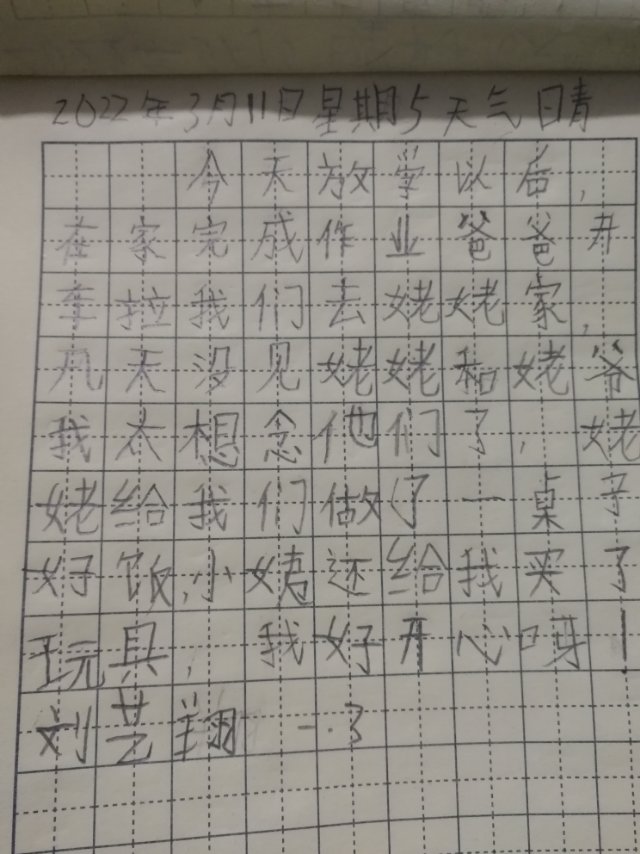 2022年3月11日星期5天气日青
今天放学以后,
在家完成作业爸爸开
车拉我们去姥姥家,
几天没见姥姥和姥爷
我太想念他们了,姥
姥给我们做了一桌子
好饭,小姨还给我买了
玩具,我好开心呀!
刘艺翔 一.3